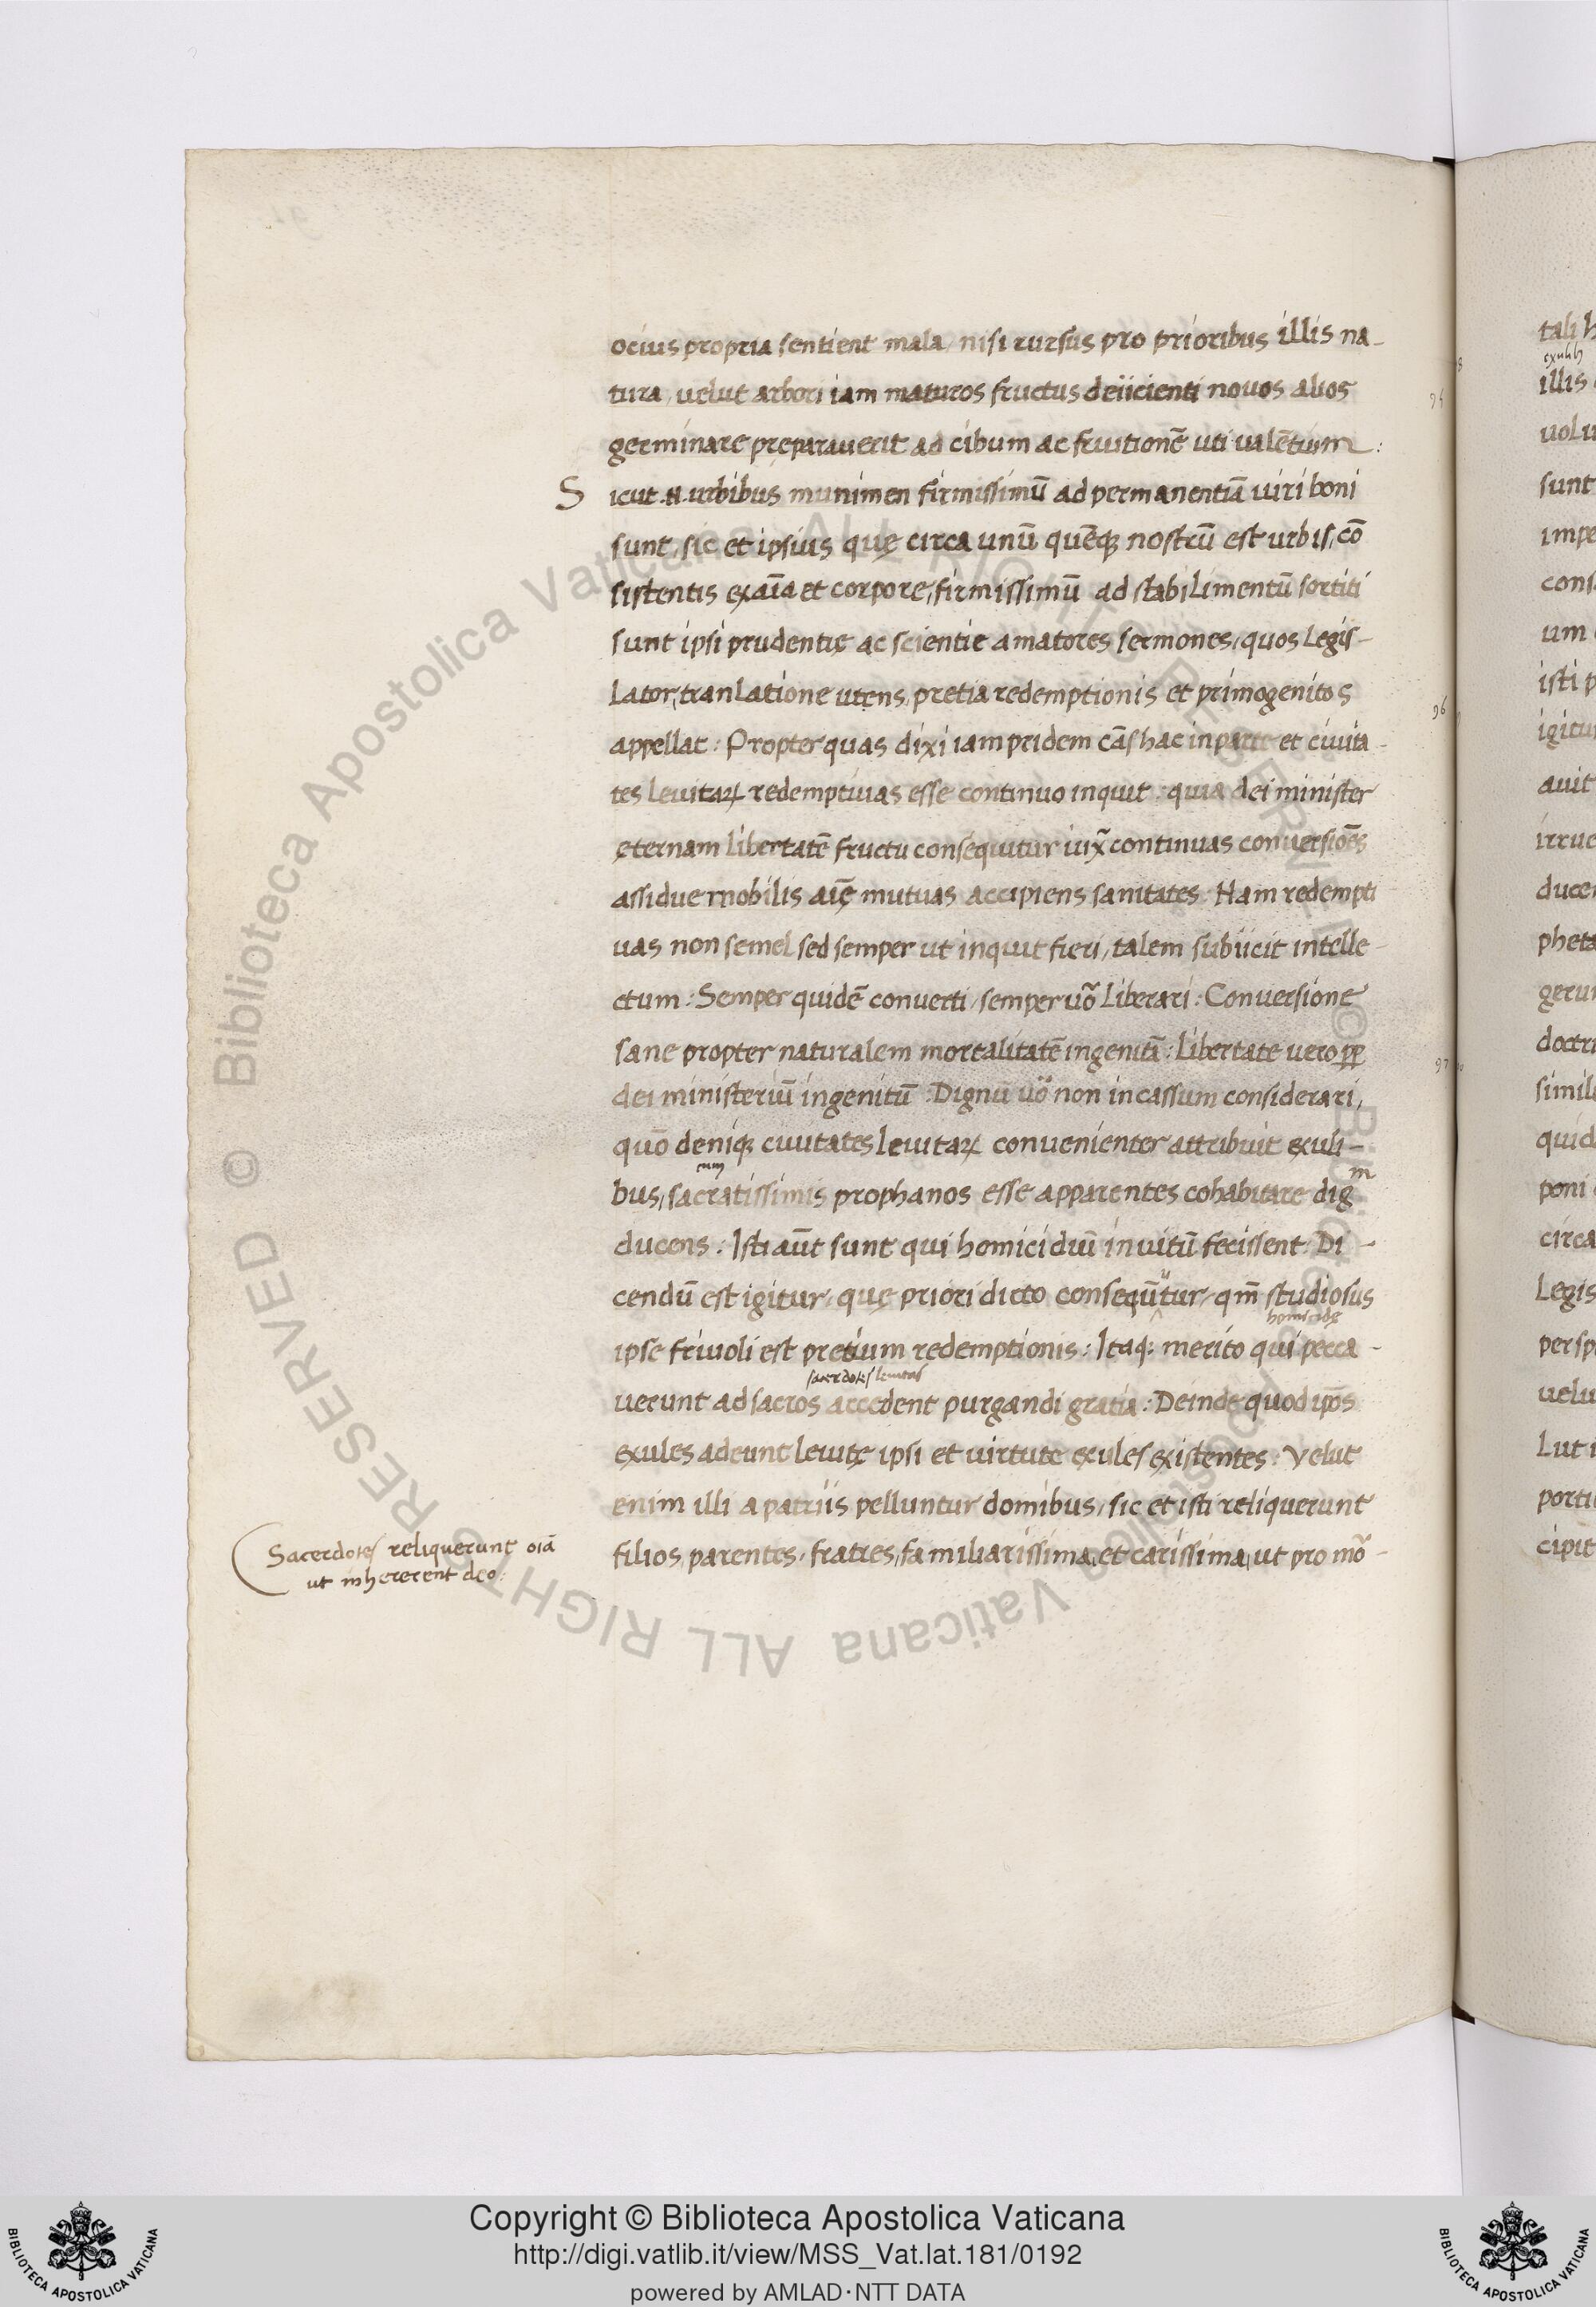 ocius propria sentient mala nisi rursus pro prioribus illis na-
tura, uelut arbori iam maturos fructus deiicienti nouos alios
germinare pręparauerit ad cibum ac fruitionē uti ualētium:
Sicut .N. urbibus munimen firmissimū ad permanentiā uiri boni
sunt, sic et ipsius quę circa unū quēq; nostrū est urbis, cō
sistentis ex aīa et corpore, firmissimū ad stabilimentū sortiti
sunt ipsi prudentię ac scientię amatores sermones, quos Legis-
lator, tranlatione utens, pretia redemptionis et primogenitos
appellat: Propter quas dixi iampridem cās hac in parte et ciuita-
tes leuitaꝝ redemptiuas esse continuo inquit: quia dei minister
ęternam libertatē fructu consequitur iuxͣ continuas conuersiōes
assidue mobilis aīę mutuas accipiens sanitates: Nam redempti
uas non semel sed semper ut inquit fieri, talem subiicit intelle-
ctum: Semper quidē conuerti, semper uō liberari: Conuersione
sane propter naturalem mortalitatē ingenitā: Libertate uero ꝓp
dei ministeriū ingenitū: Dignū uō non incassum considerari,
quō deniq; ciuitates leuitaꝝ conuenienter attribuit exuli-
num
bus, sacratissimis prophanos esse apparentes cohabitare digᵐ
ducens: Isti aūt sunt qui homicidiū inuitū fecissent: Di-
cendū est igitur, quę priori dicto consequūtur, qm̄ studiosus
homicidę
ipse friuoli est pretium redemptionis: Itaq; merito qui pecca-
sacerdotes leuitas
uerunt ad sacros accedent purgandi gratia: Deinde quod ipōs
exules adeunt leuitę ipsi et uirtute exules existentes: Velut
enim illi a patriis pelluntur domibus, sic et isti reliquerunt
filios, parentes, fratres, familiarissima, et carissima, ut pro mō-
Sacerdotes reliquerunt oīa
ut inhererent deo:
95
96
97
tali
illis
uolu
sunt
impe
cons
um
isti p
igitur
auit
irruc
ducen
pheta
gerun
doctri
simil
quid
poni
circa
Legis
persp
uelu
Lut
porti
cipit
© Biblioteca Apostolica Vaticana ALL RIGHTS RESERVED © Biblioteca Apostolica Vaticana ALL RIGHTS RESERVED
Copyright © Biblioteca Apostolica Vaticana
http://digi.vatlib.it/view/MSS_Vat.lat.181/0192
powered by AMLAD·NTT DATA
BIBLIOTECA APOSTOLICA VATICANA
BIBLIOTECA APOSTOLICA VATICANA